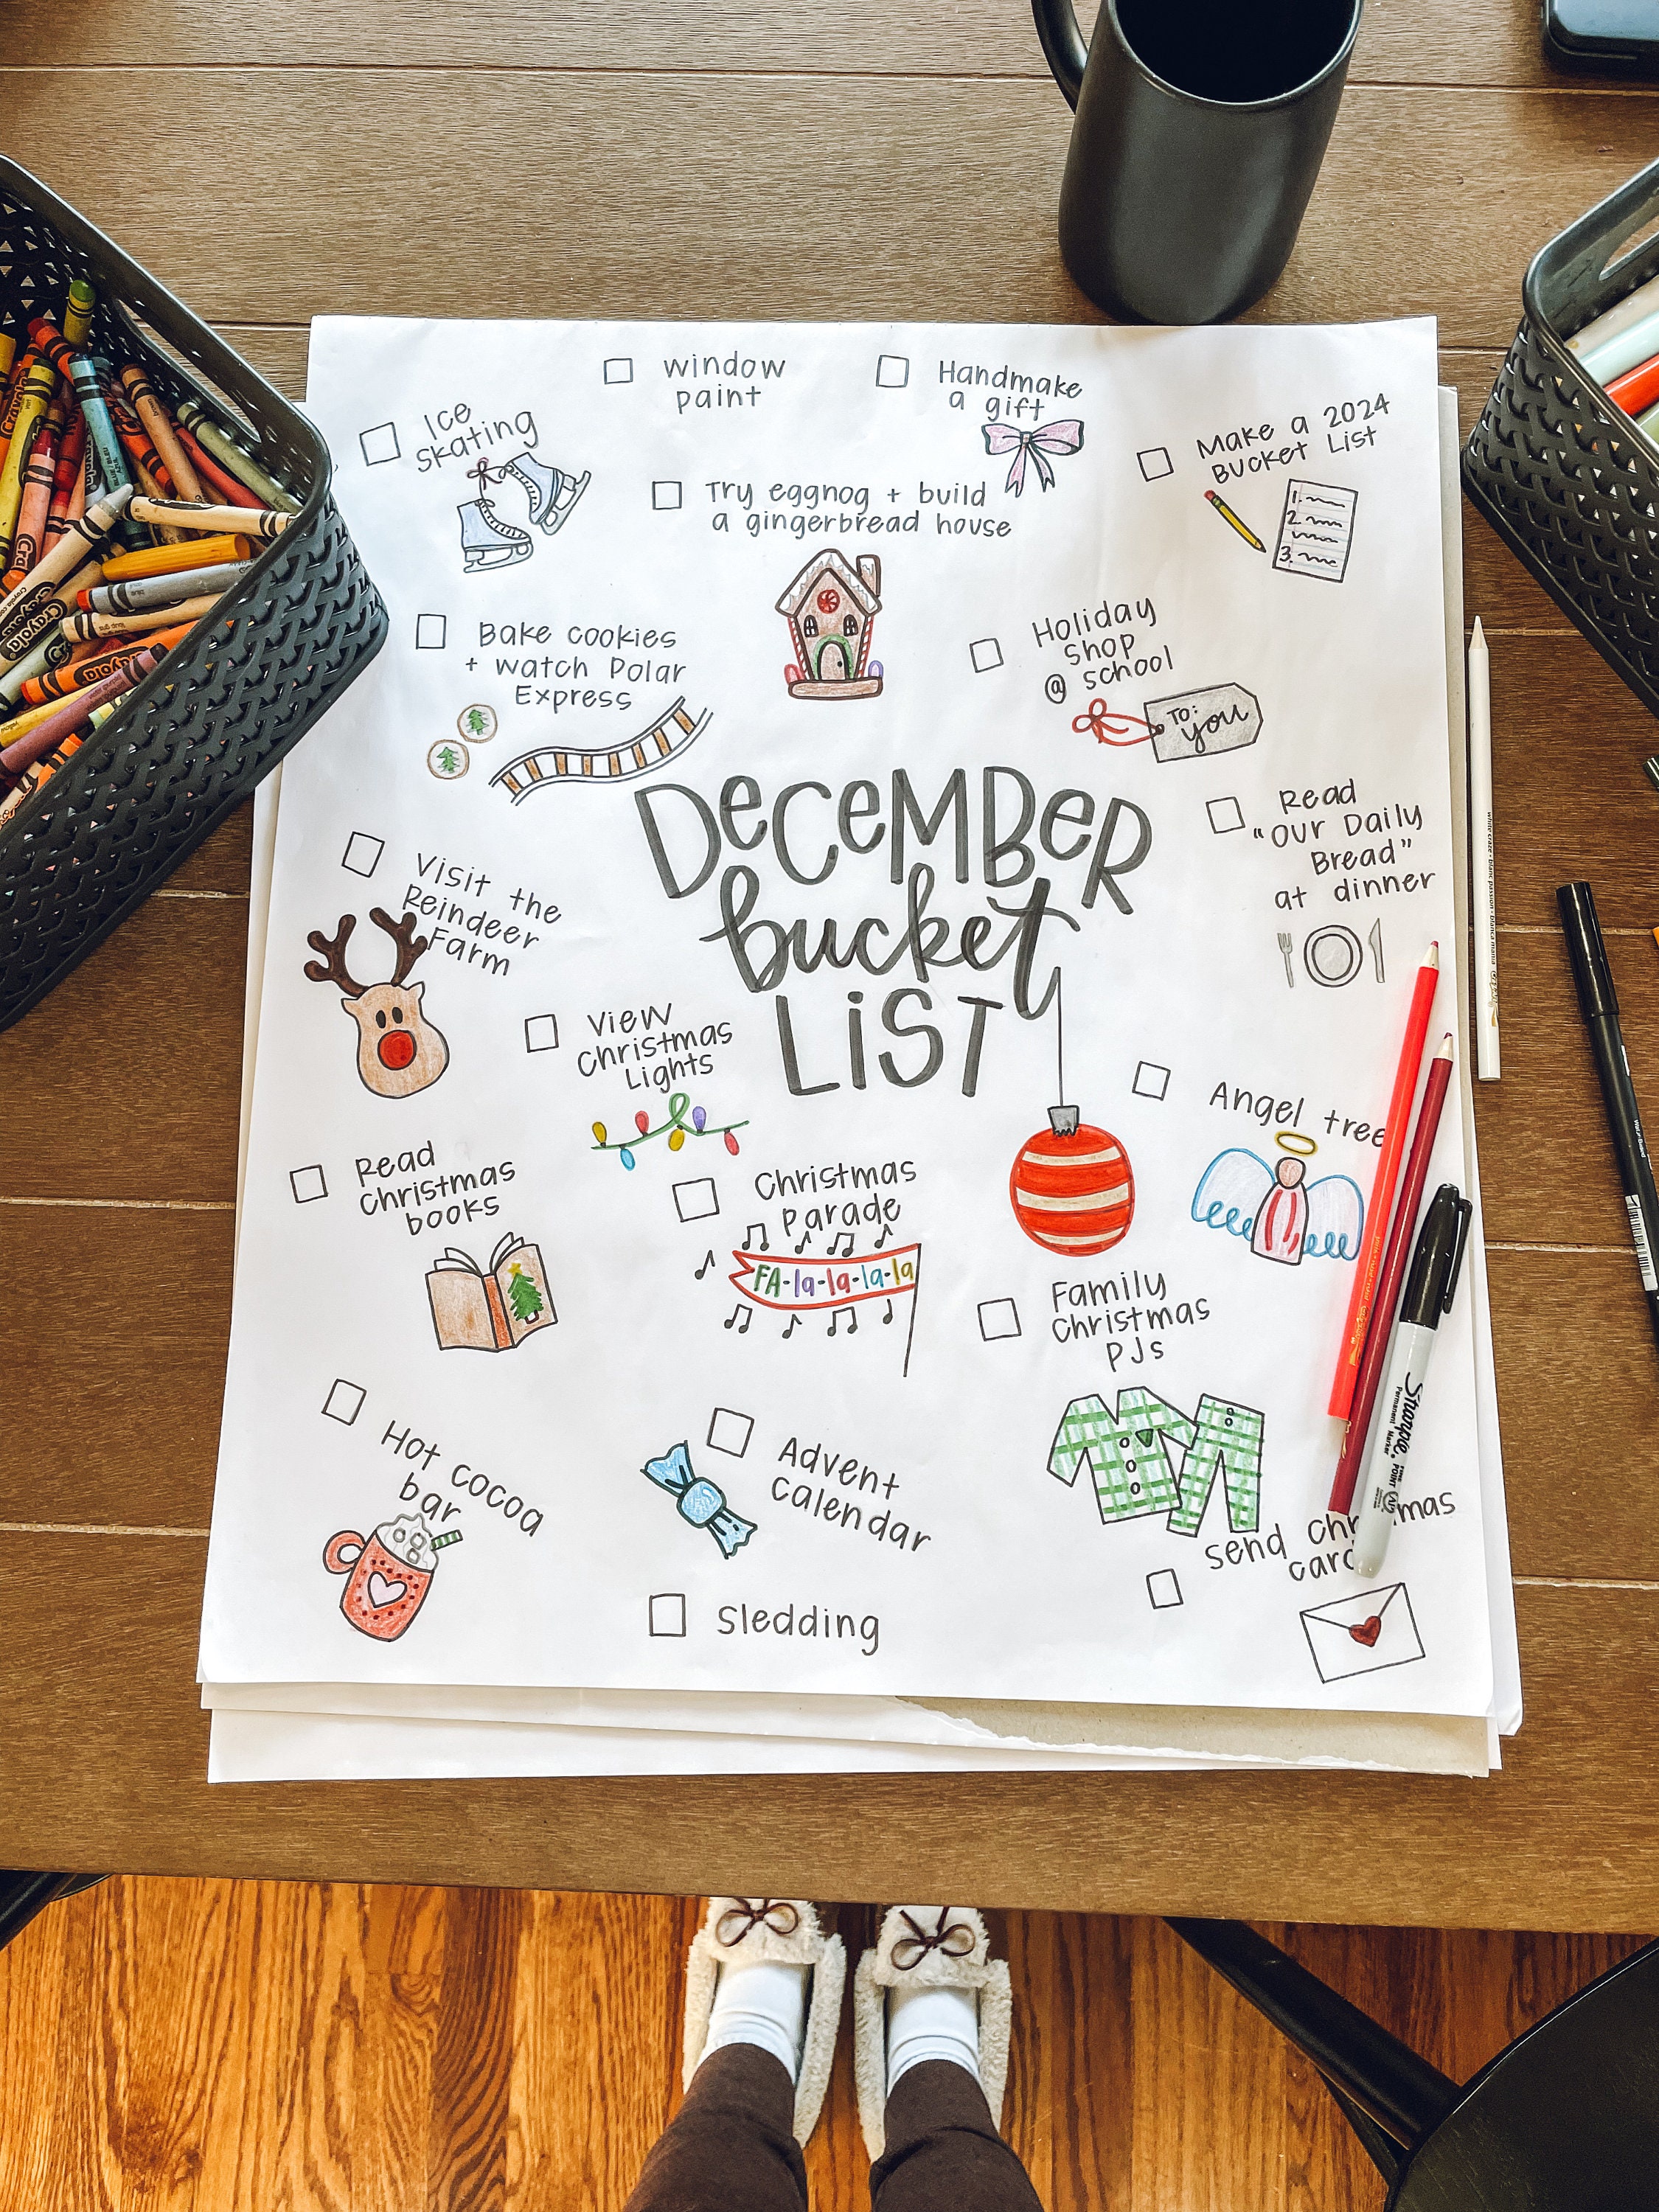 window
paint
Handmake
a gift
Ice
Skating
Make a 2024
Bucket List
1.
2.
3.
Try eggnog + build
a gingerbread house
Bake cookies
+ watch Polar
Express
Holiday
Shop
@ school
To:
you
DeceMBeR
bucket
LiST
Read
"Our Daily
Bread"
at dinner
Visit the
Reindeer
Farm
View
Christmas
Lights
Angel tree
Read
Christmas
books
Christmas
parade
FA-la-la-la-la
Family
Christmas
PJs
Hot cocoa
bar
Advent
Calendar
Send Chr mas
car
Sledding
Sharpie
Permanent Marker
FINE POINT
AP
Crayola
Crayola
Crayola